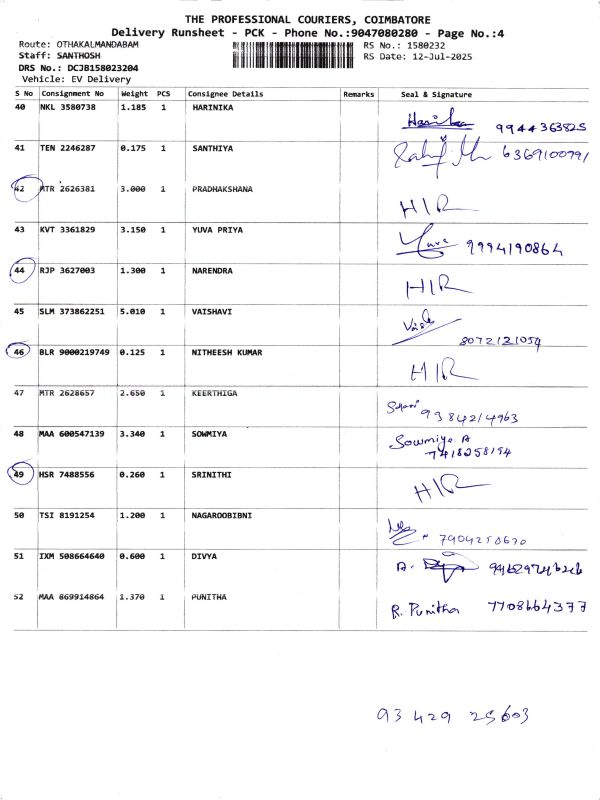 THE PROFESSIONAL COURIERS, COIMBATORE
Delivery Runsheet - PCK - Phone No.:9047080280 - Page No.:4
Route: OTHAKALMANDABAM RS No.: 1580232
Staff: SANTHOSH RS Date: 12-Jul-2025
DRS No.: DCJB158023204
Vehicle: EV Delivery
S No Consignment No Weight PCS Consignee Details Remarks Seal & Signature
40 NKL 3580738 1.185 1 HARINIKA Harinika 9944363825
41 TEN 2246287 0.175 1 SANTHIYA 6369100791
42 MTR 2626381 3.000 1 PRADHAKSHANA HIR
43 KVT 3361829 3.150 1 YUVA PRIYA Yuva 9994190864
44 RJP 3627003 1.300 1 NARENDRA HIR
45 SLM 373862251 5.010 1 VAISHAVI 8072121054
46 BLR 9000219749 0.125 1 NITHEESH KUMAR HIR
47 MTR 2628657 2.650 1 KEERTHIGA 9384214963
48 MAA 600547139 3.340 1 SOWMIYA Sowmiya A
7418258194
49 HSR 7488556 0.260 1 SRINITHI HIR
50 TSI 8191254 1.200 1 NAGAROOBIBNI 7904250670
51 IXM 508664640 0.600 1 DIVYA A.
52 MAA 869914864 1.370 1 PUNITHA R. Punitha 7708664377
93 429 25603